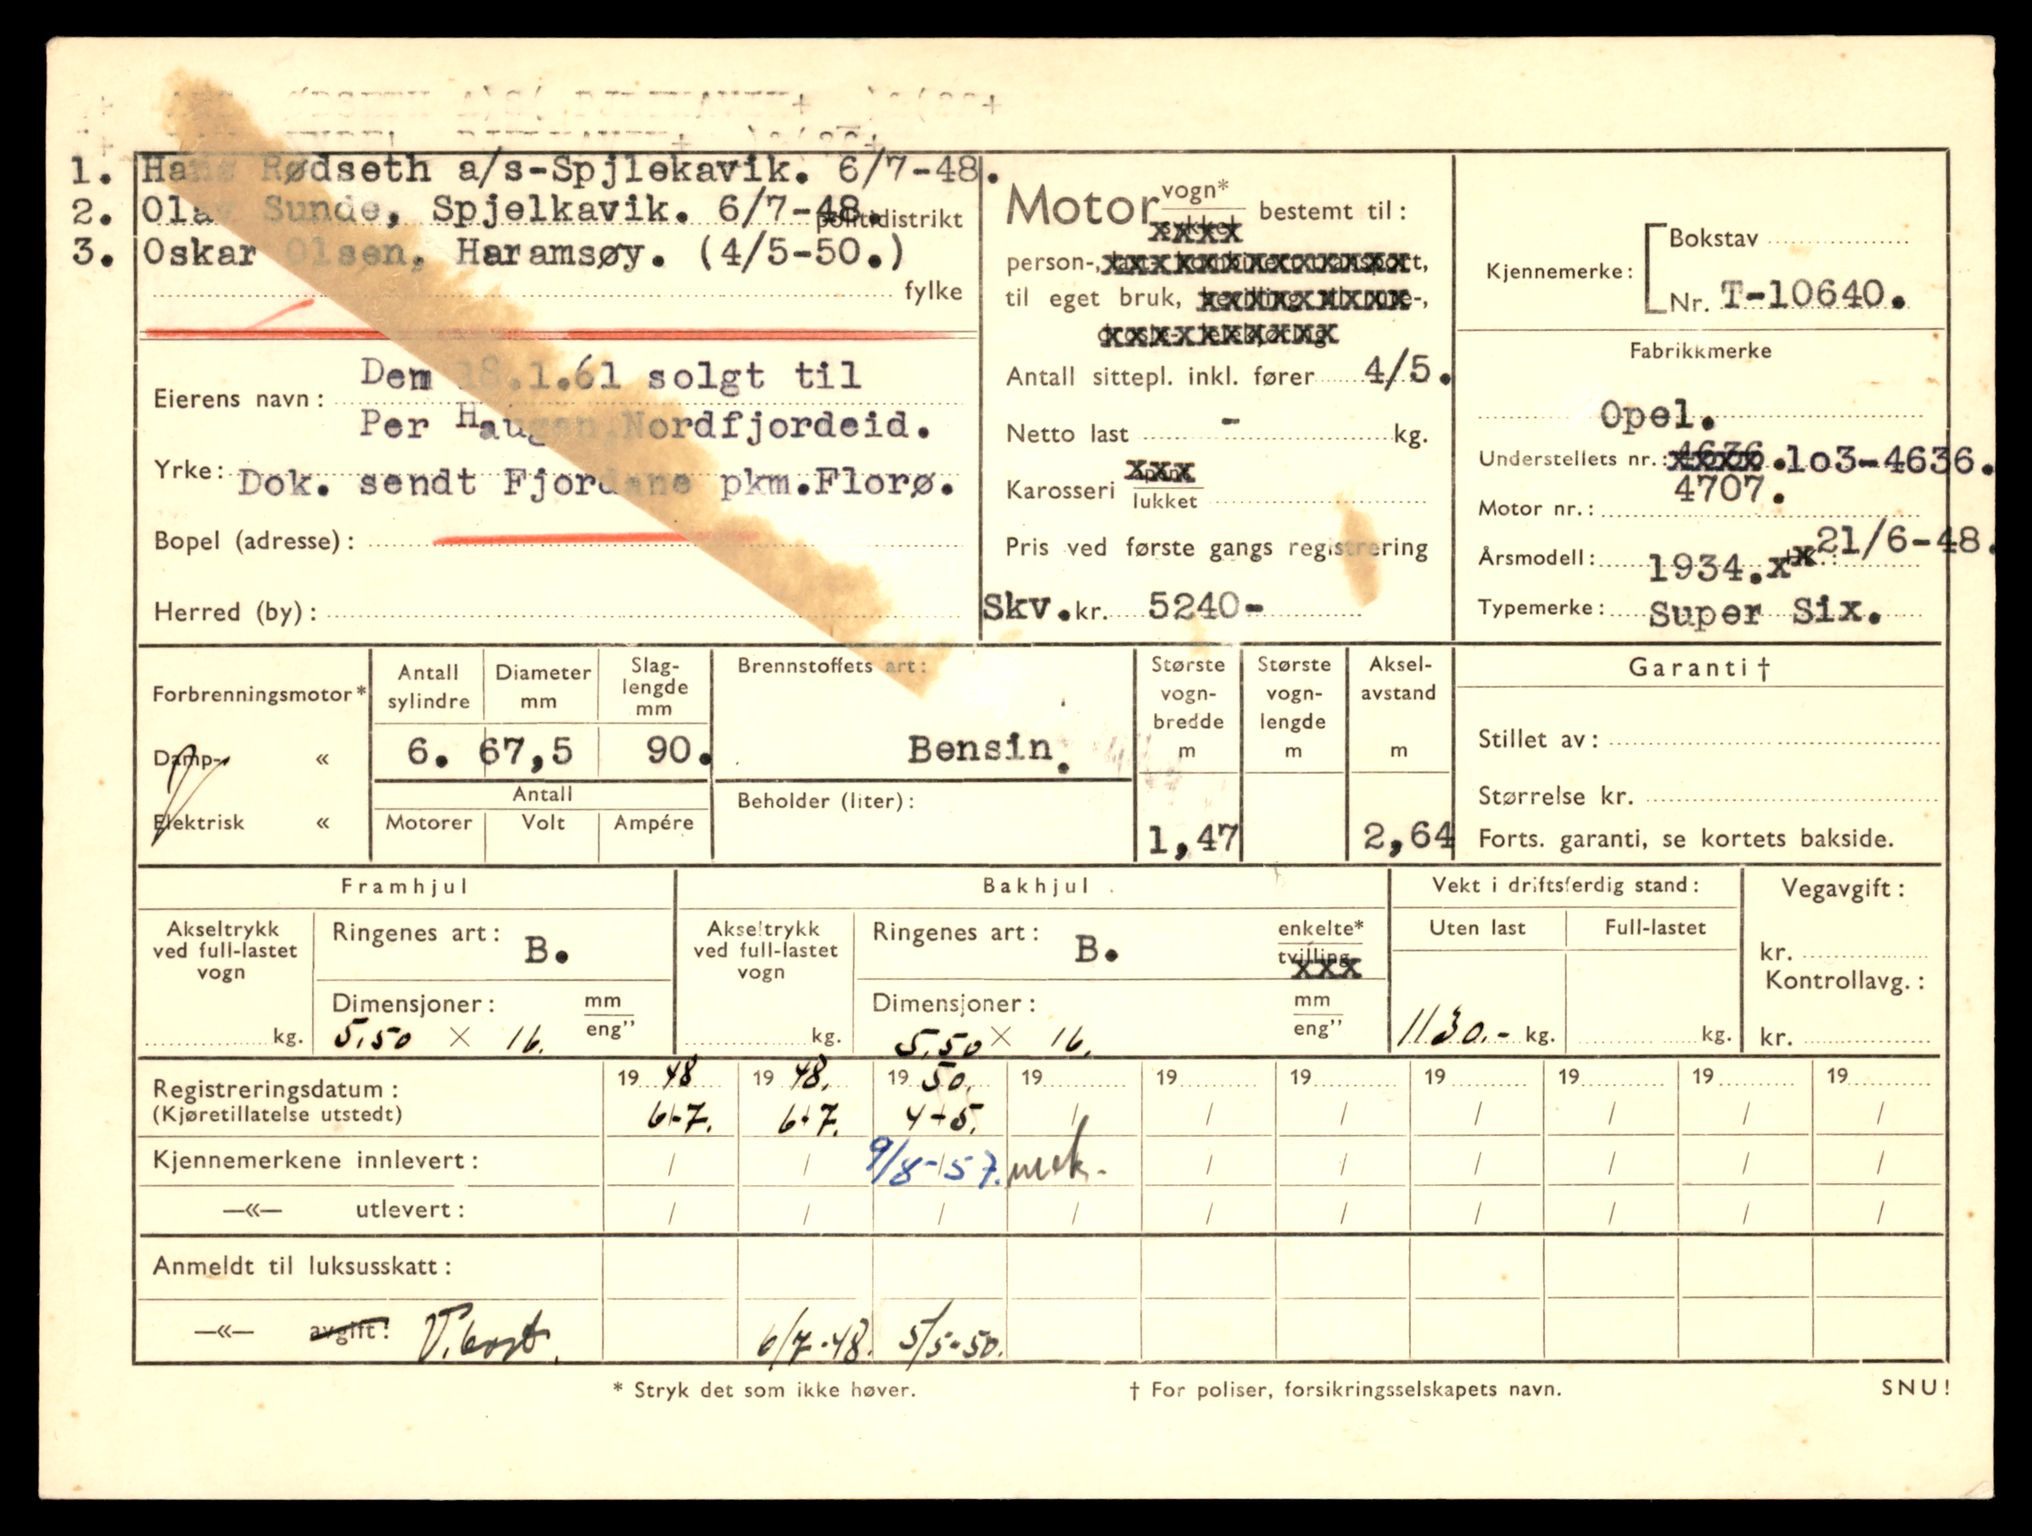 1. Hans Rødseth a/s-Spjlekavik. 6/7-48.
2. Olav Sunde, Spjelkavik. 6/7-48. politidistrikt
3. Oskar Olsen, Haramsøy. (4/5-50.)
fylke
Den 18.1.61 solgt til
Eierens navn:
Per Haugen, Nordfjordeid.
Yrke: Dok. sendt Fjordane pkm. Florø.
Bopel (adresse):
Herred (by):
Motor vogn*
xxxx bestemt til:
person-,
til eget bruk,
Antall sittepl. inkl. fører 4/5.
Netto last - kg.
Karosseri åpent xxx
lukket
Pris ved første gangs registrering
Skv. kr. 5240-
Kjennemerke: Bokstav
Nr. T-10640.
Fabrikkmerke
Opel.
Understellets nr.: 4636. 1o3-4636.
Motor nr.: 4707.
Årsmodell: 1934. 21/6-48.
Typemerke: Super Six.
Forbrenningsmotor*
Damp- «
Elektrisk «
Antall sylindre 6.
Diameter mm 67,5
Slag-lengde mm 90.
Antall
Motorer Volt Ampére
Brennstoffets art:
Bensin.
Beholder (liter):
Største vogn-bredde m 1,47
Største vogn-lengde m
Aksel-avstand m 2,64
Garanti †
Stillet av:
Størrelse kr.
Forts. garanti, se kortets bakside.
Framhjul
Akseltrykk ved full-lastet vogn
kg.
Ringenes art: B.
Dimensjoner: mm
eng"
5,50 × 16.
Bakhjul
Akseltrykk ved full-lastet vogn
kg.
Ringenes art: B.
enkelte*
tvilling xxx
Dimensjoner: mm
eng"
5,50 × 16.
Vekt i driftsferdig stand:
Uten last Full-lastet
1130.- kg. kg.
Vegavgift:
kr.
Kontrollavg.:
kr.
Registreringsdatum: 19 48 19 48. 19 50. 19 19 19 19 19 19 19
(Kjøretillatelse utstedt) 6-7. 6-7. 4-5. / / / / / / /
Kjennemerkene innlevert: / / 9/8-57. mek. / / / / / /
—«— utlevert: / / / / / / / / / /
Anmeldt til luksusskatt:
—«— avgift: V. kort. 6/7-48. 5/5-50.
* Stryk det som ikke høver.
† For poliser, forsikringsselskapets navn.
SNU!